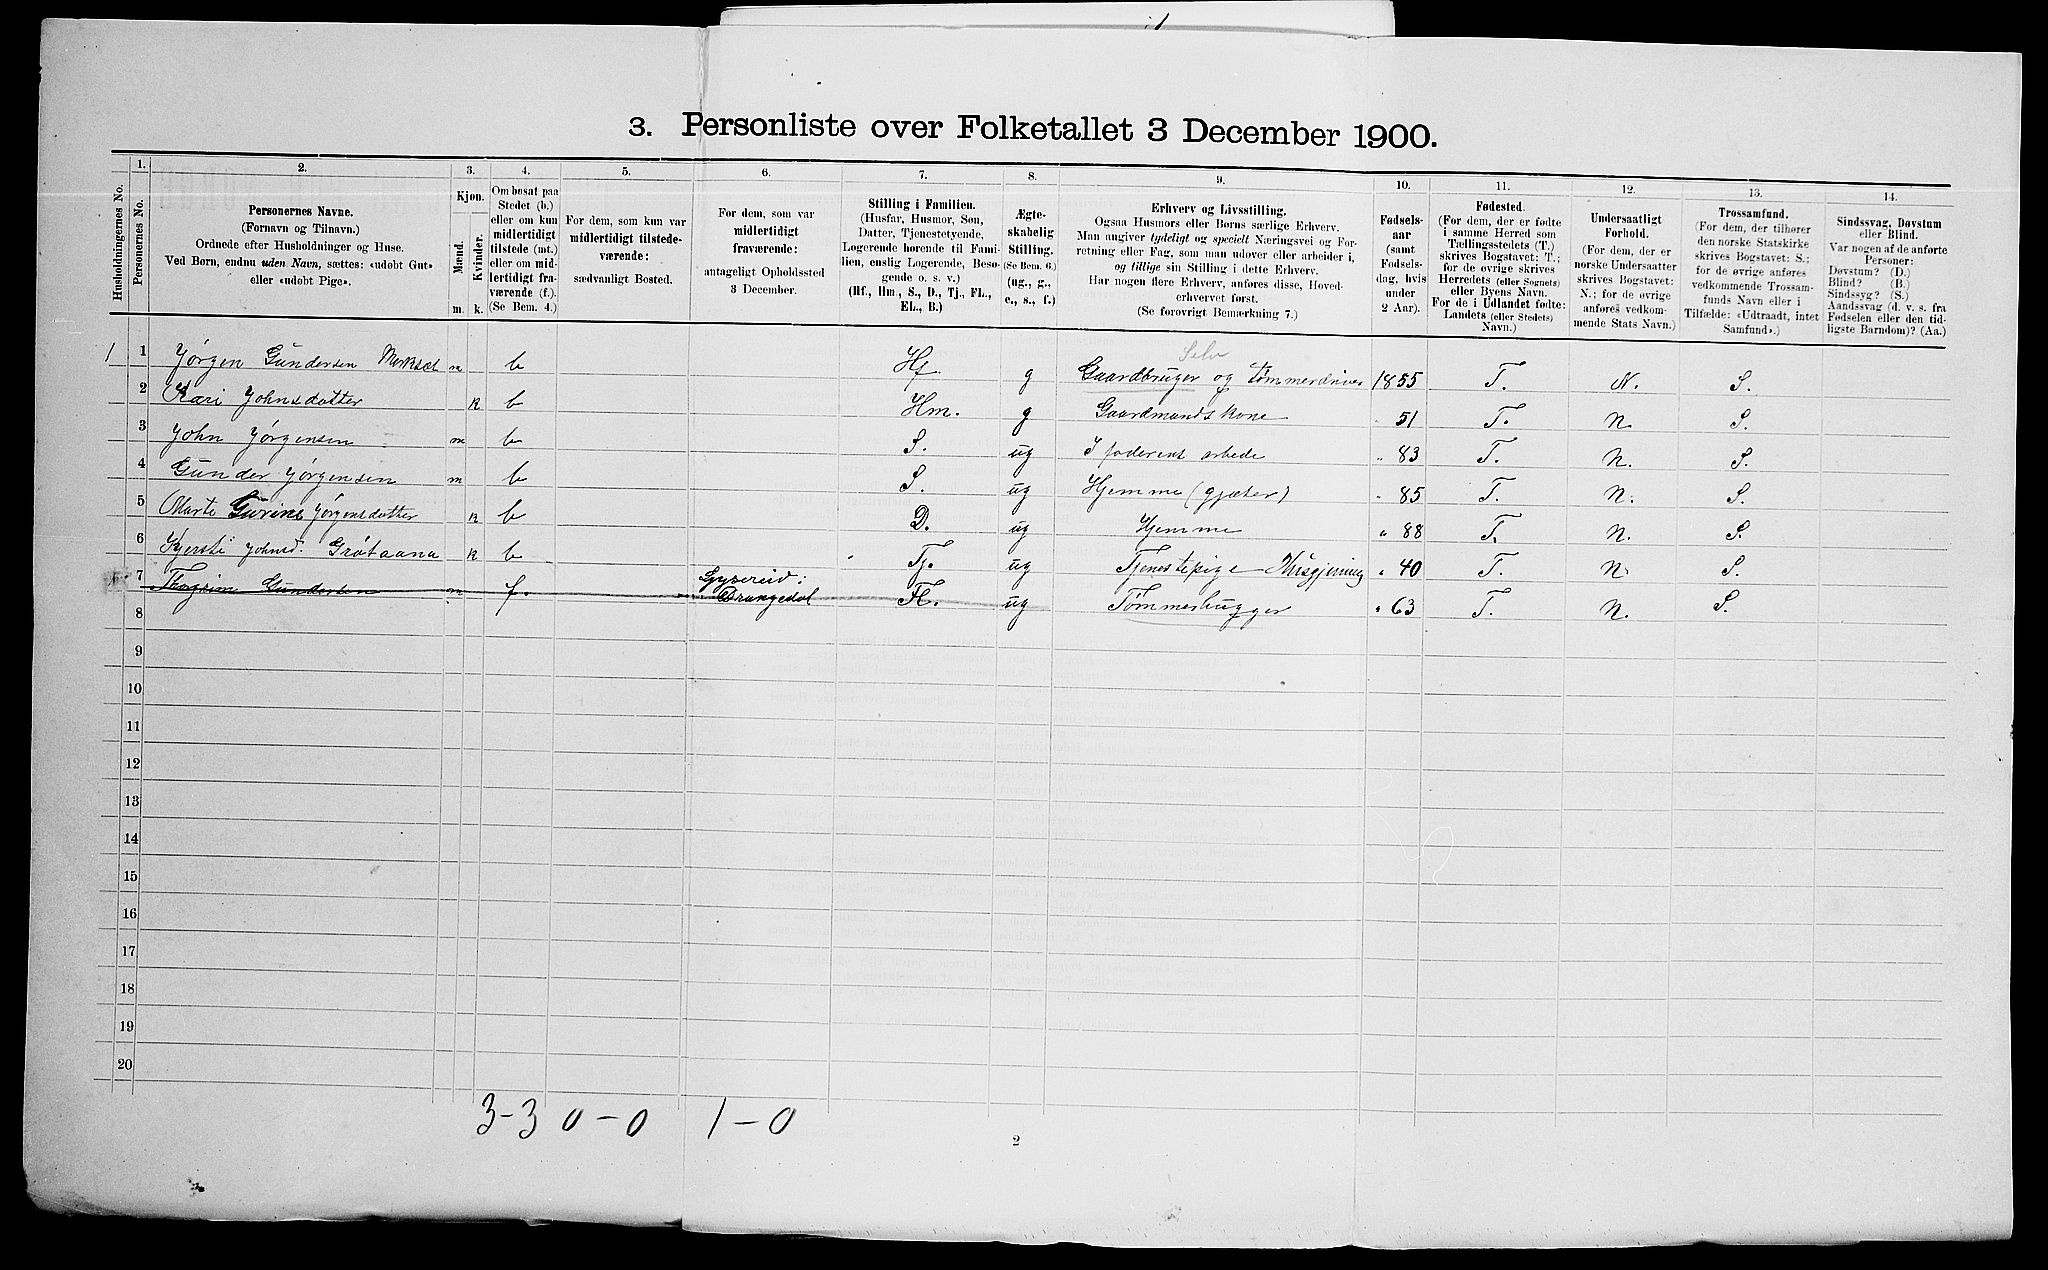 3. Personliste over Folketallet 3 December 1900.
1. 2. 3. 4. 5. 6. 7. 8. 9. 10. 11. 12. 13. 14.
Husholdningernes No.
Personernes No.
Personernes Navne.
(Fornavn og Tilnavn.)
Ordnede efter Husholdninger og Huse.
Ved Børn, endnu uden Navn, sættes: «udøbt Gut»
eller «udøbt Pige».
Kjøn.
Mænd.
Kvinder.
m. k.
Om bosat paa
Stedet (b.)
eller om kun
midlertidigt
tilstede (mt.)
eller om mid-
lertidigt fra-
værende (f.).
(Se Bem. 4.)
For dem, som kun var
midlertidigt tilstede-
værende:
sædvanligt Bosted.
For dem, som var
midlertidigt
fraværende:
antageligt Opholdssted
3 December.
Stilling i Familien.
(Husfar, Husmor, Søn,
Datter, Tjenestetyende,
Logerende hørende til Fami-
lien, enslig Logerende, Besø-
gende o. s. v.)
(Hf., Hm., S., D., Tj., FL.,
EL., B.)
Ægte-
skabelig
Stilling.
(Se Bem. 6.)
(ug., g.,
e., s., f.)
Erhverv og Livsstilling.
Ogsaa Husmors eller Børns særlige Erhverv.
Man angiver tydeligt og specielt Næringsvei og For-
retning eller Fag, som man udover eller arbeider i,
og tillige sin Stilling i dette Erhverv.
Har nogen flere Erhverv, anføres disse, Hoved-
erhvervet først.
(Se forovrigt Bemærkning 7.)
Fødsels-
aar
(samt
Fødsels-
dag, hvis
under
2 Aar).
Fødested.
(For dem, der er fødte
i samme Herred som
Tællingsstedets (T.)
skrives Bogstavet: T.;
for de øvrige skrives
Herredets (eller Sognets)
eller Byens Navn.
For de i Udlandet fødte:
Landets (eller Stedets)
Navn.)
Undersaatligt
Forhold.
(For dem, der er
norske Undersaatter
skrives Bogstavet:
N.; for de øvrige
anføres vedkom-
mende Stats Navn.)
Trossamfund.
(For dem, der tilhører
den norske Statskirke
skrives Bogstavet: S.;
for de øvrige anføres
vedkommende Trossam-
funds Navn eller i
Tilfælde: «Udtraadt, intet
Samfund».)
Sindssvag, Døvstum
eller Blind.
Var nogen af de anførte
Personer:
Døvstum? (D.)
Blind? (B.)
Sindssyg? (S.)
Aandssvag (d. v. s. fra
Fødselen eller den tid-
ligste Barndom)? (Aa.)
Selv
1 1 Jørgen Gundersen m b Hf. g Gaardbruger og tømmerdriver 1855 T. N. S.
2 Kari Johnsdatter k b Hm. g Gaardmandskone " 51 T. N. S.
3 John Jørgensen m b S. ug I faderens arbede " 83 T. N. S.
4 Gunder Jørgensen m b S. ug Hjemme (gjæter) " 85 T. N. S.
5 Marte Gurine Jørgensdatter k b D. ug Hjemme " 88 T. N. S.
6 Kjersti Johnsd. Grøtaana k b Tj. ug Tjenestepige Husgjerning " 40 T. N. S.
7 Gundersen m f. Drangedal FL. ug Tømmerhugger " 63 T. N. S.
8
9
10
11
12
13
14
15
16
17
18
19
20
3-3 0-0 1-0
2